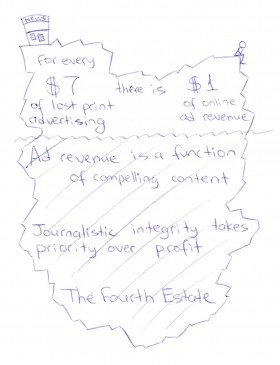 NEWS
For every
$7 there is $1
of lost print of online
advertising ad revenue
Ad revenue is a function
of compelling content
Journalistic integrity takes
priority over profit
The Fourth Estate